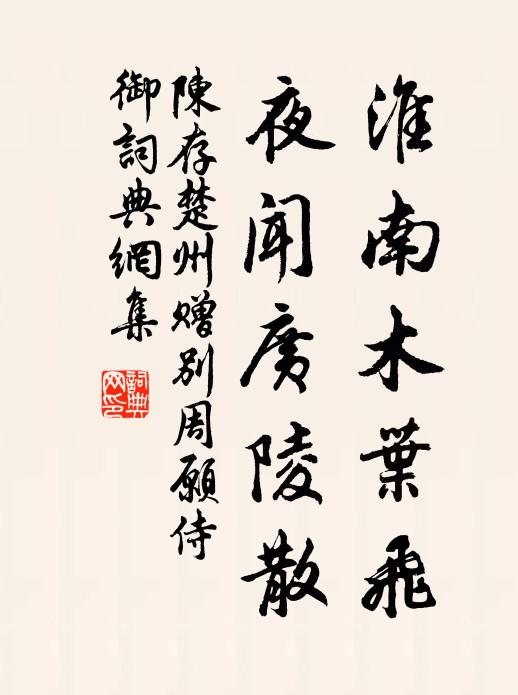 淮南木葉飛
夜闻廣陵散
陳存楚州赠别周願侍
御詞典網集
詞典
网印